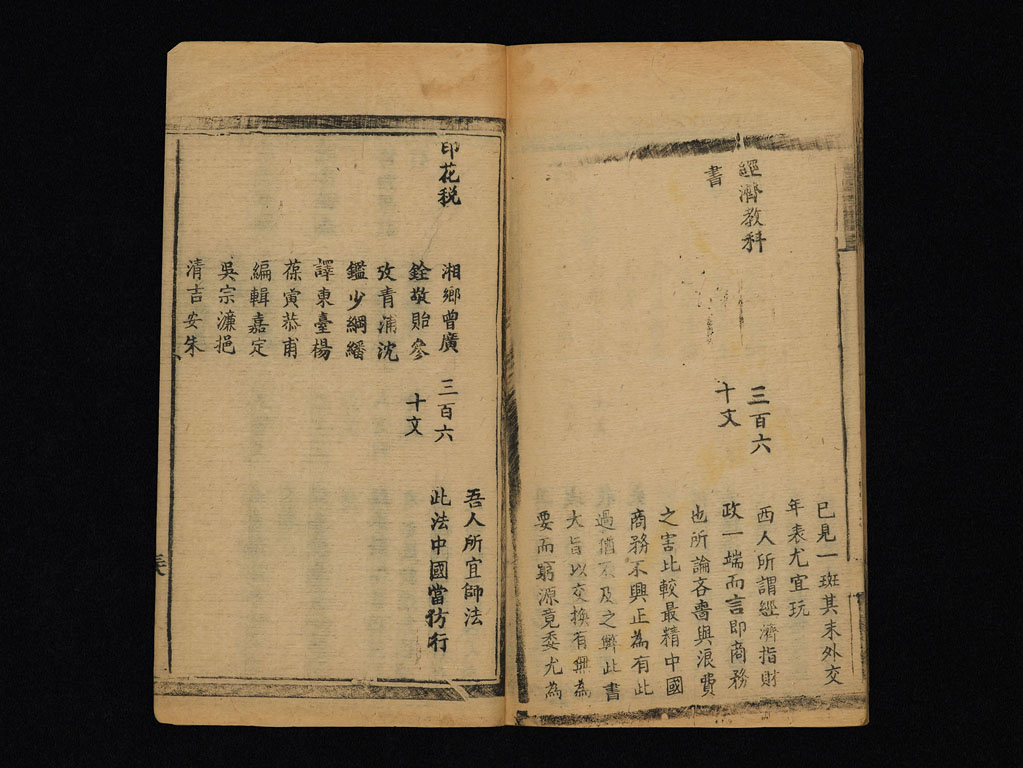 已見一斑其末外交
年表尤宜玩
經濟教科
書
三百六
十文
西人所謂經濟指財
政一端而言即商務
也所論吝嗇與浪費
之害比較最精中國
商務不興正為有此
過猶不及之弊此書
大旨以交換有無為
要而窮源竟委尤為
吾人所宜師法
印花稅
湘鄉曾廣
銓敬貽參
攷青浦沈
鑑少綱繙
譯東臺楊
葆寅恭甫
編輯嘉定
吳宗濂挹
清吉安朱
三百六
十文
此法中國當仿行